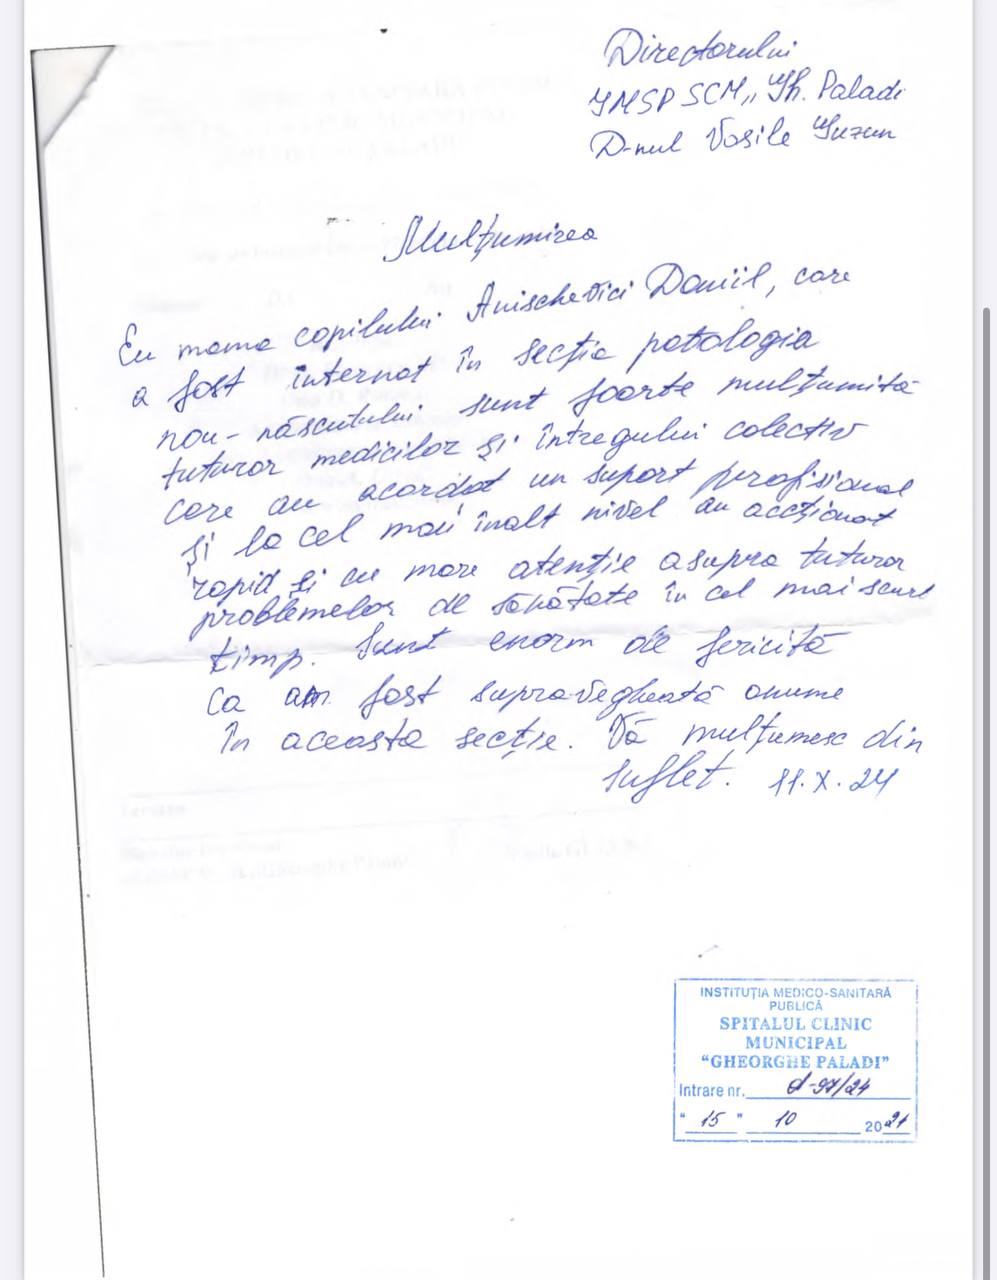 Directorului
IMSP SCM „Gh. Paladi
D-nul Vasile Guzun
Mulțumirea
Eu mama copilului Anischevici Daniil, care
a fost internat în secția patologia
nou-născutului sunt foarte mulțumită
tuturor medicilor și întregului colectiv
care au acordat un suport profisional
și la cel mai înalt nivel au accționat
rapid și cu mare atenție asupra tuturor
problemelor de sănătate în cel mai scurt
timp. Sunt enorm de fericită
ca am fost supravegheată anume
în aceasta secție. Vă mulțumesc din
suflet. 11.X.24
INSTITUȚIA MEDICO-SANITARĂ
PUBLICĂ
SPITALUL CLINIC
MUNICIPAL
"GHEORGHE PALADI"
Intrare nr. d-97/24
" 15 " 10 20